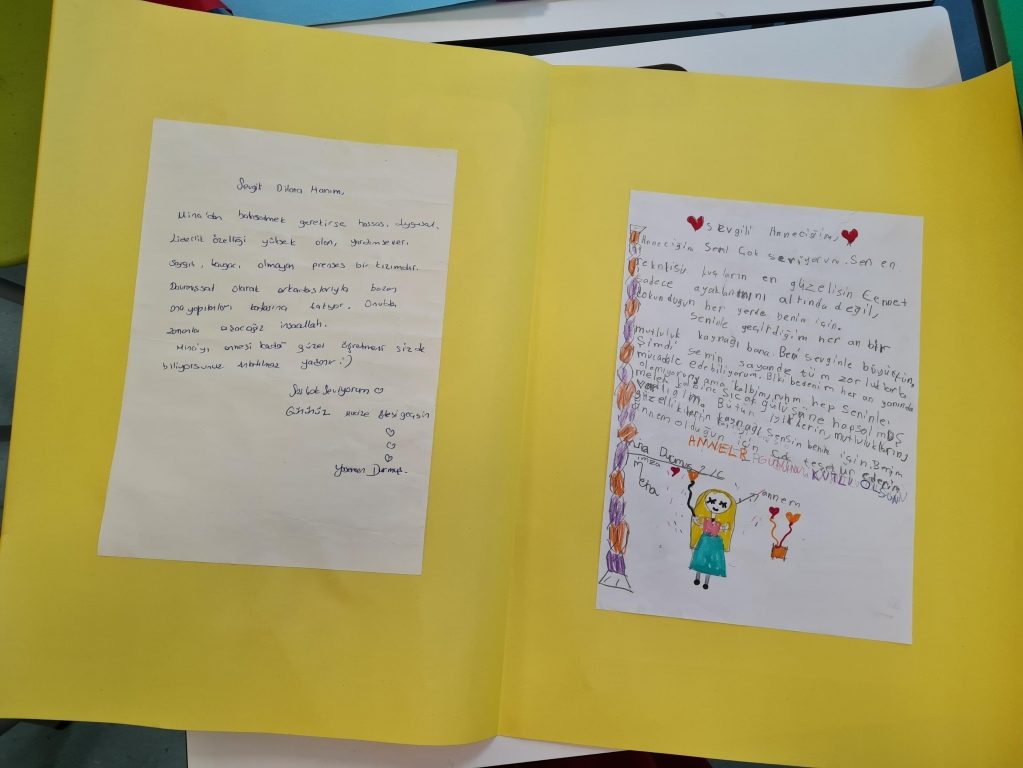 Sevgili Dilara Hanım,
Mina'dan bahsetmek gerekirse hassas, duygusal,
Liderlik özelliği yüksek olan, yardımsever,
Saygılı, kavgacı olmayan prenses bir kızımdır.
Duygusal olarak arkadaşlarıyla bazen
katıyor. Onuda
zamanla aşacağız inşaallah.
Mina'yı annesi kadar güzel öğretmeni sizde
biliyorsunuz :)
Sizi Çok Seviyorum
Gününüz geçsin
Yasemen Durmuş.
Sevgili Anneciğim,
Anneciğim Seni Çok seviyorum. Sen en
kuşların en güzelisin Cennet
sadece ayaklarının altında değil,
dokunduğun her yerde benim için.
Seninle geçirdiğim her an bir
mutluluk kaynağı bana. Beni sevginle büyüttün,
Şimdi senin sayende tüm zorluklarla
mücadele edebiliyorum. Belki bedenim her an yanında
olamıyor ama kalbim, ruhm hep seninle.
melek kalbine sıcak gülüşüne hapsolmuş
varlığım. Bütün iyiklerin, mutlulukların,
güzelliklerin kaynağı Sensin benim için. Benim
annem olduğun için Çok teşekür ederim
ANNELR GÜNÜN KUTLU OLSUN
Mina Durmuş 2/C
imza
annem